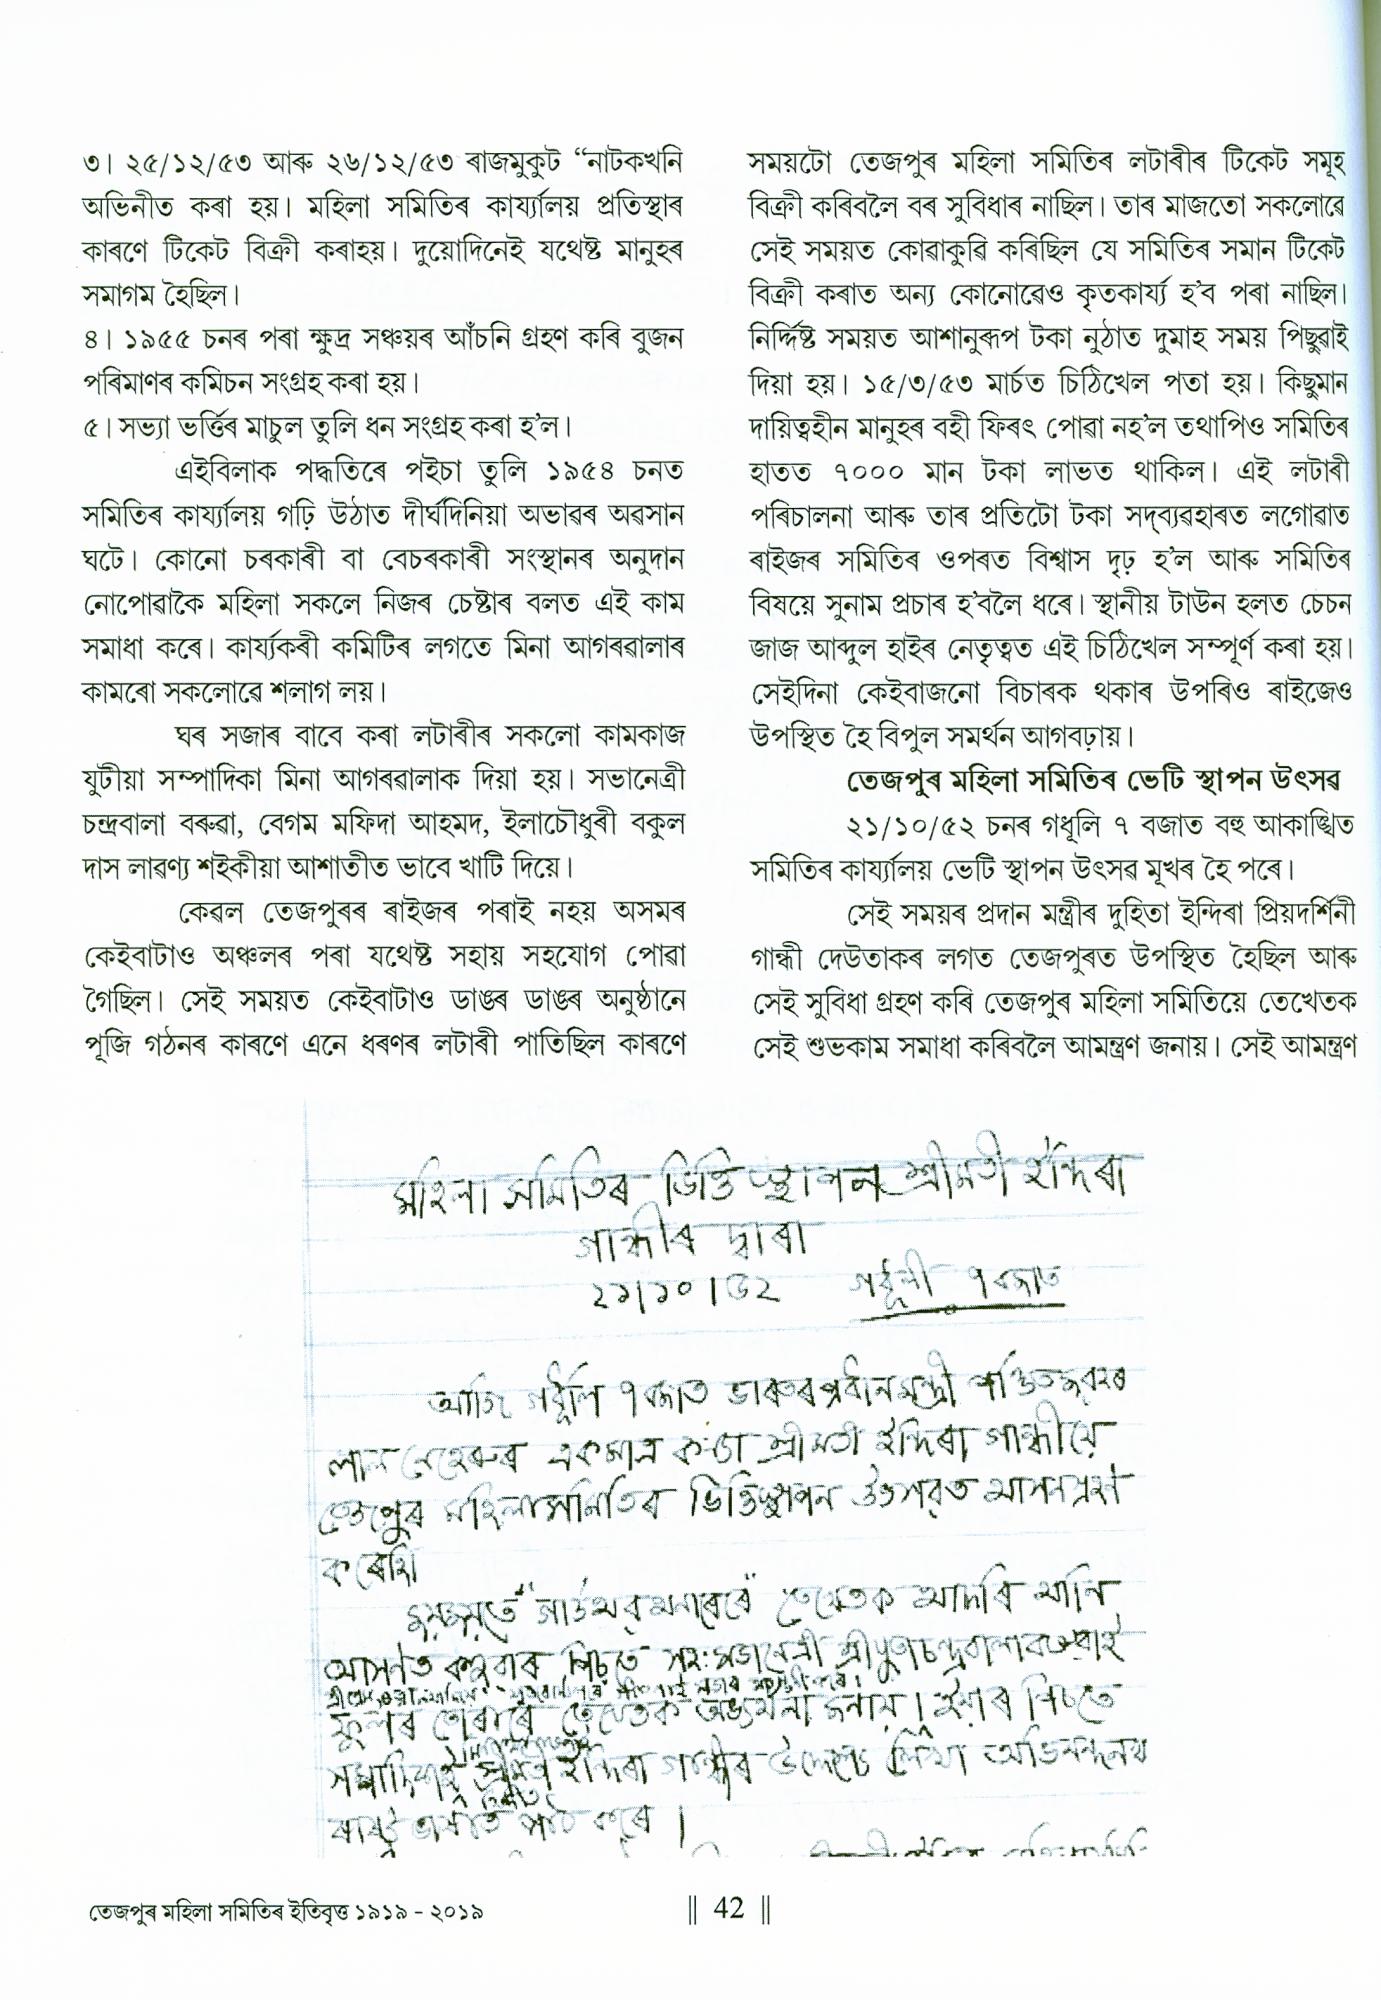 ৩। ২৫/১২/৫৩ আৰু ২৬/১২/৫৩ ৰাজমুকুট “নাটকখনি
অভিনীত কৰা হয়। মহিলা সমিতিৰ কাৰ্য্যালয় প্ৰতিস্থাৰ
কাৰণে টিকেট বিক্ৰী কৰাহয়। দুয়োদিনেই যথেষ্ট মানুহৰ
সমাগম হৈছিল।
৪। ১৯৫৫ চনৰ পৰা ক্ষুদ্ৰ সঞ্চয়ৰ আঁচনি গ্ৰহণ কৰি বুজন
পৰিমাণৰ কমিচন সংগ্ৰহ কৰা হয়।
৫। সভ্যা ভৰ্ত্তিৰ মাচুল তুলি ধন সংগ্ৰহ কৰা হ’ল।
এইবিলাক পদ্ধতিৰে পইচা তুলি ১৯৫৪ চনত
সমিতিৰ কাৰ্য্যালয় গঢ়ি উঠাত দীৰ্ঘদিনিয়া অভাৱৰ অৱসান
ঘটে। কোনো চৰকাৰী বা বেচৰকাৰী সংস্থানৰ অনুদান
নোপোৱাকৈ মহিলা সকলে নিজৰ চেষ্টাৰ বলত এই কাম
সমাধা কৰে। কাৰ্য্যকৰী কমিটিৰ লগতে মিনা আগৰৱালাৰ
কামৰো সকলোৱে শলাগ লয়।
ঘৰ সজাৰ বাবে কৰা লটাৰীৰ সকলো কামকাজ
যুটীয়া সম্পাদিকা মিনা আগৰৱালাক দিয়া হয়। সভানেত্ৰী
চন্দ্ৰবালা বৰুৱা, বেগম মফিদা আহমদ, ইলাচৌধুৰী বকুল
দাস লাৱণ্য শইকীয়া আশাতীত ভাবে খাটি দিয়ে।
কেৱল তেজপুৰৰ ৰাইজৰ পৰাই নহয় অসমৰ
কেইবাটাও অঞ্চলৰ পৰা যথেষ্ট সহায় সহযোগ পোৱা
গৈছিল। সেই সময়ত কেইবাটাও ডাঙৰ ডাঙৰ অনুষ্ঠানে
পূজি গঠনৰ কাৰণে এনে ধৰণৰ লটাৰী পাতিছিল কাৰণে
সময়টো তেজপুৰ মহিলা সমিতিৰ লটাৰীৰ টিকেট সমূহ
বিক্ৰী কৰিবলৈ বৰ সুবিধাৰ নাছিল। তাৰ মাজতো সকলোৱে
সেই সময়ত কোৱাকুৱি কৰিছিল যে সমিতিৰ সমান টিকেট
বিক্ৰী কৰাত অন্য কোনোৱেও কৃতকাৰ্য্য হ’ব পৰা নাছিল।
নিৰ্দ্দিষ্ট সময়ত আশানুৰূপ টকা নুঠাত দুমাহ সময় পিছুৱাই
দিয়া হয়। ১৫/৩/৫৩ মাৰ্চত চিঠিখেল পতা হয়। কিছুমান
দায়িত্বহীন মানুহৰ বহী ফিৰৎ পোৱা নহ’ল তথাপিও সমিতিৰ
হাতত ৭০০০ মান টকা লাভত থাকিল। এই লটাৰী
পৰিচালনা আৰু তাৰ প্ৰতিটো টকা সদ্‌ব্যৱহাৰত লগোৱাত
ৰাইজৰ সমিতিৰ ওপৰত বিশ্বাস দৃঢ় হ’ল আৰু সমিতিৰ
বিষয়ে সুনাম প্ৰচাৰ হ’বলৈ ধৰে। স্থানীয় টাউন হলত চেচন
জাজ আব্দুল হাইৰ নেতৃত্বত এই চিঠিখেল সম্পূৰ্ণ কৰা হয়।
সেইদিনা কেইবাজনো বিচাৰক থকাৰ উপৰিও ৰাইজেও
উপস্থিত হৈ বিপুল সমৰ্থন আগবঢ়ায়।
তেজপুৰ মহিলা সমিতিৰ ভেটি স্থাপন উৎসৱ
২১/১০/৫২ চনৰ গধূলি ৭ বজাত বহু আকাঙ্খিত
সমিতিৰ কাৰ্য্যালয় ভেটি স্থাপন উৎসৱ মূখৰ হৈ পৰে।
সেই সময়ৰ প্ৰদান মন্ত্ৰীৰ দুহিতা ইন্দিৰা প্ৰিয়দৰ্শিনী
গান্ধী দেউতাকৰ লগত তেজপুৰত উপস্থিত হৈছিল আৰু
সেই সুবিধা গ্ৰহণ কৰি তেজপুৰ মহিলা সমিতিয়ে তেখেতক
সেই শুভকাম সমাধা কৰিবলৈ আমন্ত্ৰণ জনায়। সেই আমন্ত্ৰণ
মহিলা সমিতিৰ ভিত্তি স্থাপন শ্ৰীমতী ইন্দিৰা
গান্ধীৰ দ্বাৰা
২১।১০।৫২ গধূলী ৭ বজাত
আজি গধূলি ৭ বজাত ভাৰতৰ প্ৰধানমন্ত্ৰী পণ্ডিত জৱহৰ
লাল নেহেৰুৰ একমাত্ৰ কন্যা শ্ৰীমতী ইন্দিৰা গান্ধীয়ে
তেজপুৰ মহিলা সমিতিৰ ভিত্তিস্থাপন উৎসৱত আসন গ্ৰহণ
কৰেহি
তেখেতক আদৰি আনি
আসনত বহুৱাৰ পিচত
ফুলৰ তোৰাৰে তেখেতক অভ্যৰ্থনা জনায়। ইয়াৰ পিচত
ইন্দিৰা গান্ধীৰ উদ্দেশ্যে লিখা অভিনন্দনখন
পাঠ কৰে।
তেজপুৰ মহিলা সমিতিৰ ইতিবৃত্ত ১৯১৯ - ২০১৯
|| 42 ||